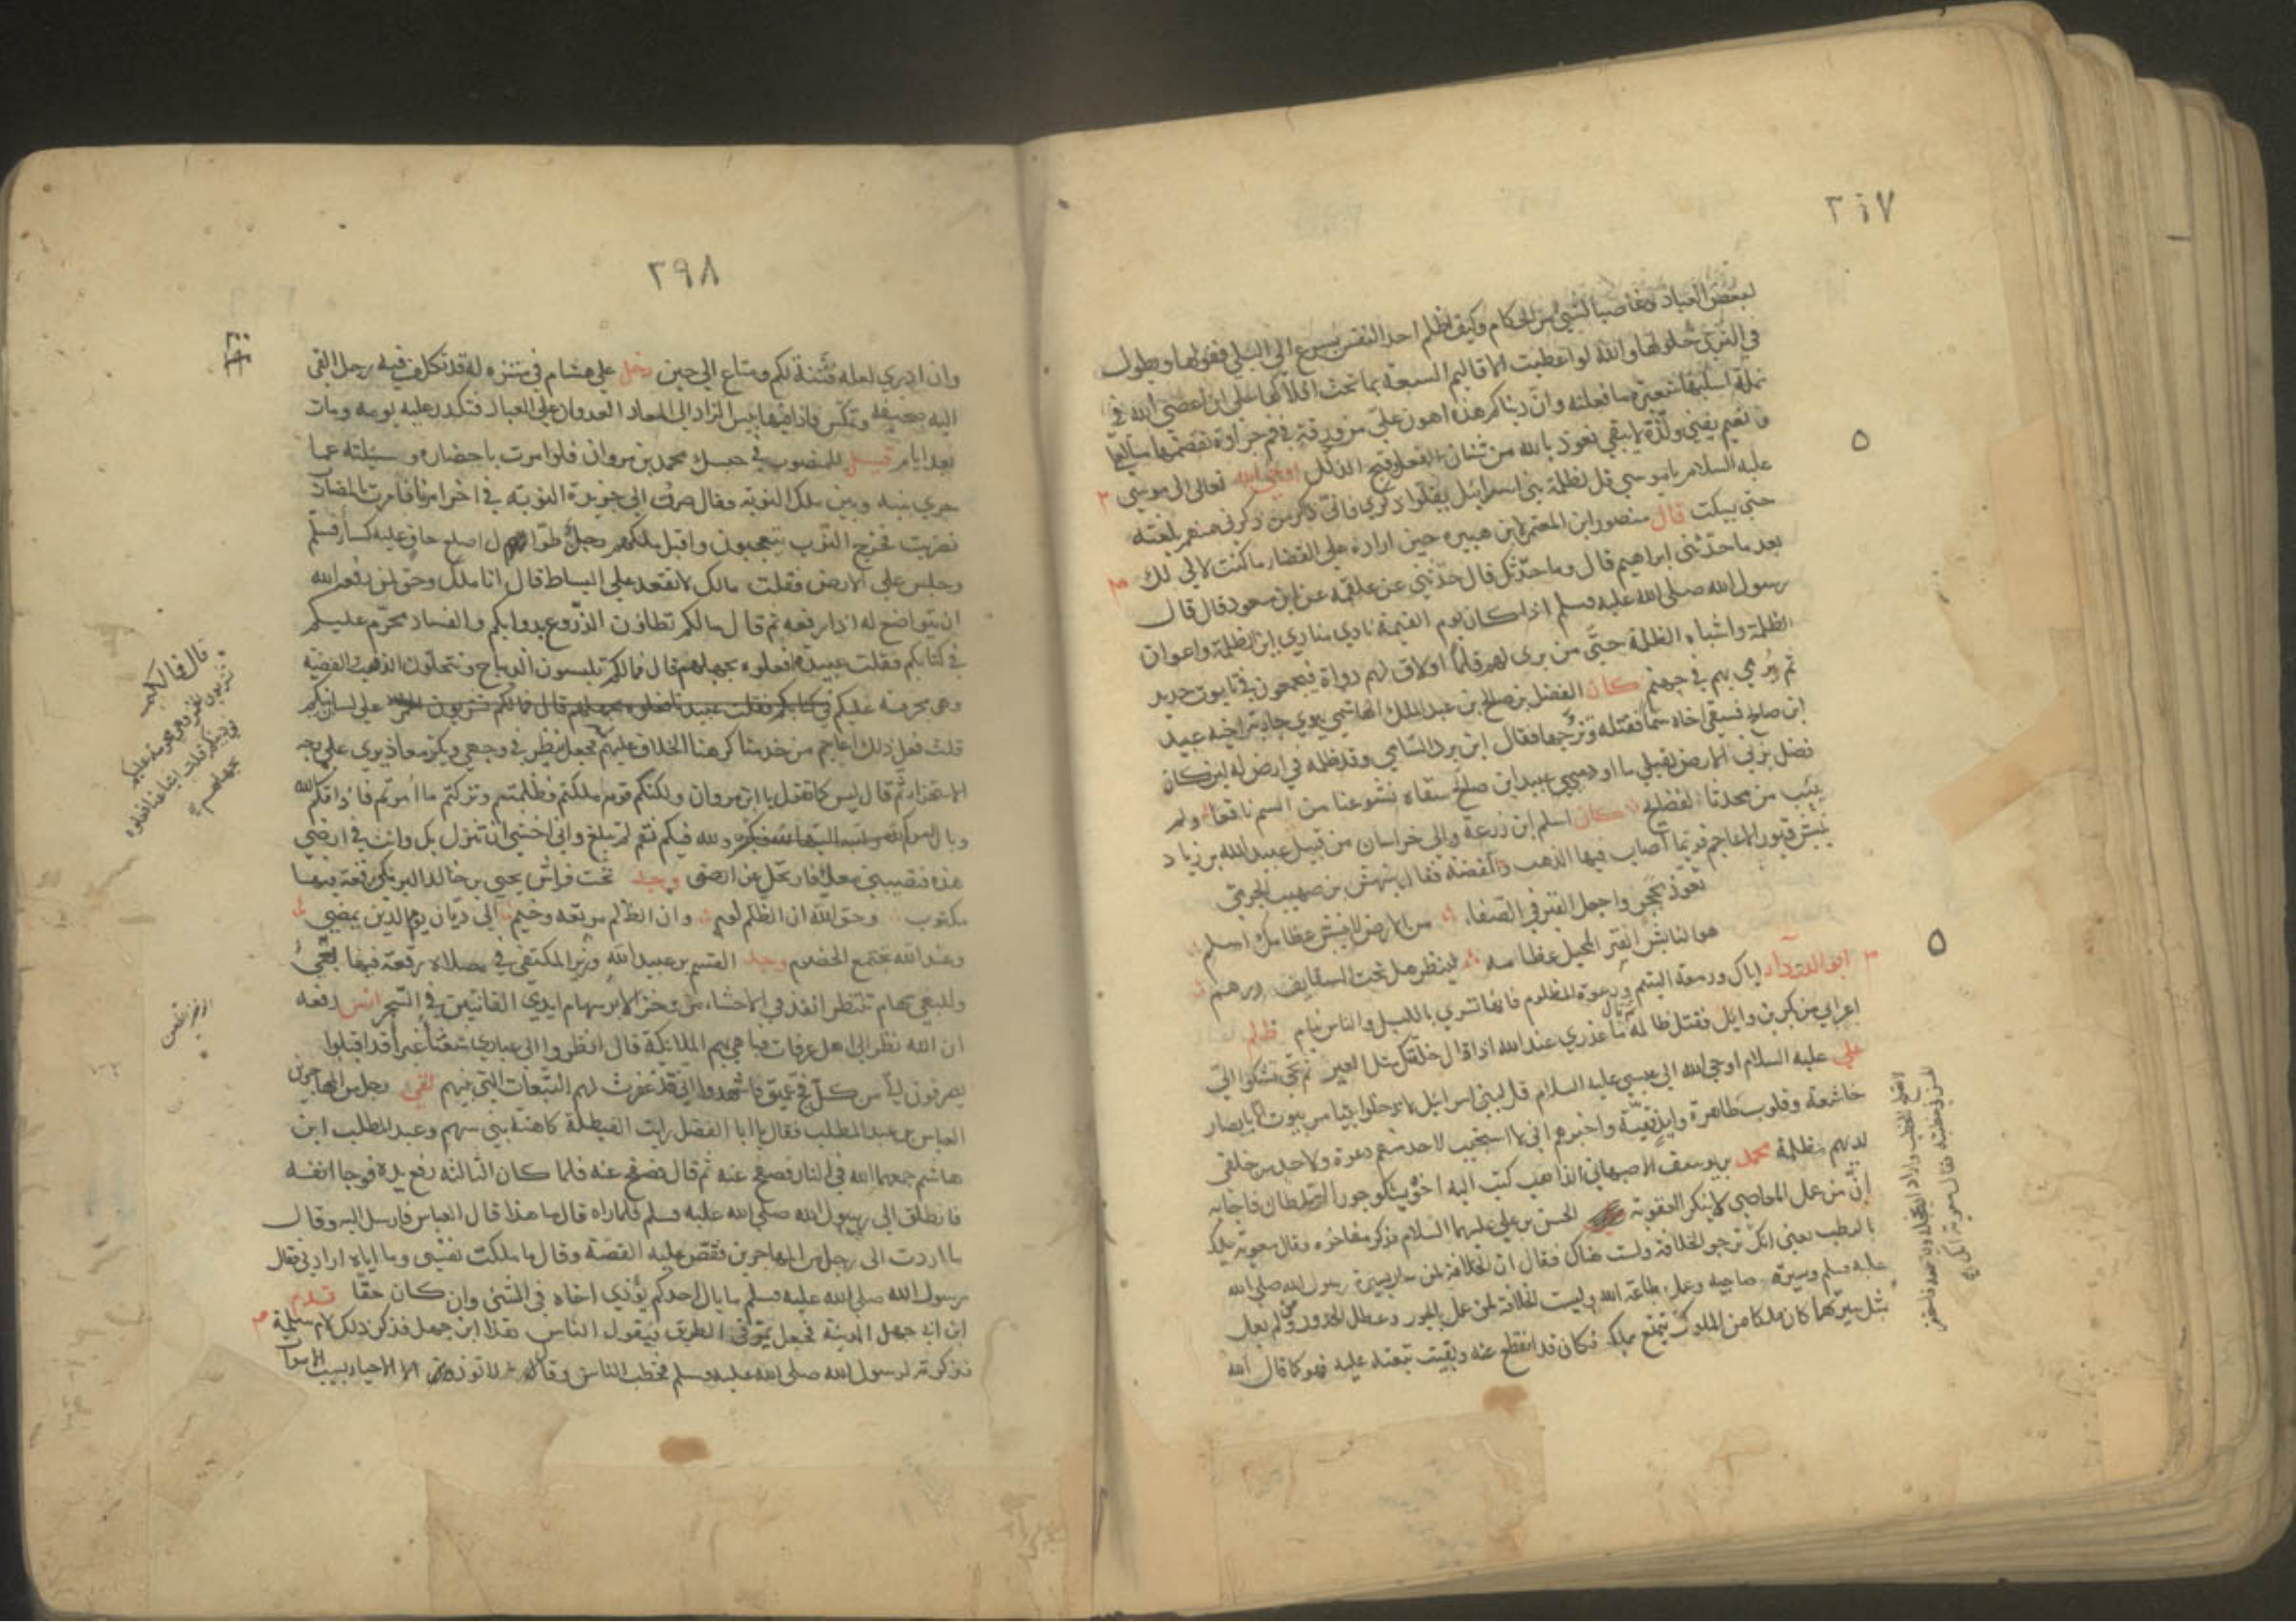 ٢٩٧
لبعض العباد وغاصبا لشيء من الحكام وكيف اظلم احدا لنفس يسرع الى البلى قفولها ويطول
في الثرى حلولها والله لو اعطيت الاقاليم السبعة بما تحت افلاكها على ان اعصي الله في
نملة اسلبها شعيرة ما فعلته وان دنياكم هذه اهون علي من ورقة في فم جرادة تقضمها ما لعلي
ونعيم يفنى ولذة لا تبقى نعوذ بالله من الفعل وقبح الذلل اوحى الله تعالى الى موسى
عليه السلام يا موسى قل لظلمة بني اسرائيل يقلوا ذكري فاني ذاكر من ذكرني منهم بلعنته
حتى يسكت قال منصور ابن المعتمر لابن هبيرة حين اراده على القضاء ما كنت لالي لك
بعد ما حدثني ابراهيم قال وما حدثك قال حدثني عن علقمة عن ابن مسعود قال قال
رسول الله صلى الله عليه وسلم اذا كان يوم القيمة نادى منادي اين الظلمة واعوان
الظلمة واشباه الظلمة حتى من برى لهم قلما او لاق لهم دواة فيجمعون في تابوت حديد
ثم يرمى بهم في جهنم كان الفضل بن صالح بن عبد الملك الهاشمي يهوى جارية اخيه عبيد
ابن صالح فسقى اخاه سما فقتله وتزوجها فقال ابن برد الشامي وقد ظلمه في ارض له لئن كان
فضل بزني الارض لقبلي ما اودى عبيد ابن صالح سقاه نشوعنا من السم ناقعا ولم
يتئب من محدثات الفضايح كان اسلم ابن زرعة والي خراسان من قبل عبيد الله بن زياد
ينبش قبور الاعاجم فربما اصاب فيها الذهب والفضة فقال بيهس بن صهيب الجرمي
تعوذ بحجر واجعل القبر في الصفا من الارض لا ينبش عظامك اسلم
هو النابش القبر المحيل عظامه لينظر هل تحت السقايف درهم
ابو الدرداء اياك ودمعة اليتيم ودعوة المظلوم فانها تسري بالليل والناس نيام ظلم
اعرابي من بكر بن وائل فقتل ظالمه ثم قال ما عذري عند الله اذا قال خلقتك مثل العير ثم تجي تشكوا الي
علي عليه السلام اوحى الله الى عيسى عليه السلام قل لبني اسرائيل لا تدخلوا بيتا من بيوتي الا بابصار
خاشعة وقلوب طاهرة وايد نقية واخبرهم اني لا استجيب لاحد منهم دعوة ولاحد من خلقي
لديهم مظلمة محمد بن يوسف الاصبهاني الذاهب كتب اليه اخوه يشكو جور السلطان فاجابه
ان من عمل المعاصي لا ينكر العقوبة الحسن بن علي عليهما السلام فذكر مفاخره وقال معوية عليك
بالرطب يعني انك ترجو الخلافة ولست هناك فقال ان الخلافة لمن سار بسيرة رسول الله صلى الله
عليه وسلم وسيرة صاحبيه وعمل بطاعة الله وليست الخلافة لمن عمل بالجور وعطل الحدود ومن لم يعمل
بمثل سيرتهما كان ملكا من الملوك يتمتع بملكه فكان قد انقطع عنه وبقيت تبعته عليه فهو كما قال الله
٢٩٨
وان ادري لعله فتنة لكم ومتاع الى حين دخل على هشام في متنزه له قد تكلف فيه رجل القى
اليه صحيفة وتكس فاذا فيها بئس الزاد الى المعاد العدوان على العباد فتكدر عليه يومه وبات
بعد ايام قيل للمنصور في حبسك محمد بن مروان فلو امرت باحضاره وسئلته عما
جرى بينه وبين ملك النوبة فقال صرت الى جزيرة النوبة في اخر امرنا فامرت بالمضارب
فضربت فخرج النوب يتعجبون واقبل ملكهم رجل طوال اصلع حاف عليه كساء فسلم
وجلس على الارض فقلت مالك لا تقعد على البساط قال انا ملك وحق لمن رفعه الله
ان يتواضع له اذا رفعه ثم قال ما لكم تطاؤن الزروع بدوابكم والفساد محرم عليكم
في كتابكم فقلت عبيدنا فعلوه بجهلهم قال فما لكم تلبسون الديباج وتتحلون الذهب والفضة
وهي محرمة عليكم في كتابكم فقلت عبيدنا فعلوه بجهلهم قال فما لكم تشربون الخمر على لسان نبيكم
قلت فعل ذلك اعاجم من خدمنا كرهنا الخلاف عليهم فجعل ينظر في وجهي ويكرر معاذيري على وجه
الاستهزاء ثم قال ليس كما تقول يا ابن مروان ولكنكم قوم ملكتم فظلمتم وتركتم ما امرتم فاذاقكم الله
وبال امركم ولله فيكم نقم لم تبلغ واني اخشى ان تنزل بك وانت في ارضي
هذه فتصيبني معك فارتحل عن ارضي وجد تحت فراش يحيى بن خالد البرمكي رقعة فيها
مكتوب وحق الله ان الظلم لؤم وان الظلم مرتعه وخيم الى ديان يوم الدين يمضي
وعند الله تجتمع الخصوم وجد القسم بن عبيد الله وزير المكتفي في مصلاه رقعة فيها بغي
وللبغي سهام تنتظر انفذ في الاحشاء من وخز الابر سهام ايدي القانتين في السحر انس رفعه
ان الله نظر الى اهل عرفات فباهى بهم الملائكة قال انظروا الى عبادي شعثا غبرا قد اقبلوا
يضربون الي من كل فج عميق فاشهدوا اني قد غفرت لهم التبعات التي بينهم لقي رجل من المهاجرين
العباس بن عبد المطلب فقال يا ابا الفضل رايت الغيطلة كاهنة بني سهم وعبد المطلب ابن
هاشم جمعهما الله في النار فصفح عنه ثم قال فصفح عنه فلما كان الثالثة رفع يده فوجا انفه
فانطلق الى رسول الله صلى الله عليه وسلم فلما راه قال ما هذا قال العباس فارسل اليه وقال
ما اردت الى رجل من المهاجرين فقص عليه القصة وقال ما ملكت نفسي وما اياه اراد لي فقال
رسول الله صلى الله عليه وسلم ما بال احدكم يؤذي اخاه في الشيء وان كان حقا قدم
ابن ابي جهل المدينة فجعل يمر في الطريق فيقول الناس هذا ابن جهل فذكر ذلك لام سلمة
فذكرته لرسول الله صلى الله عليه وسلم فخطب الناس وقال لا تؤذوا الاحياء بسبب الاموات
قال فما لكم
تشربون الخمر وهي محرمة عليكم
في دينكم قلت اشياعنا فعلوه
بجهلهم